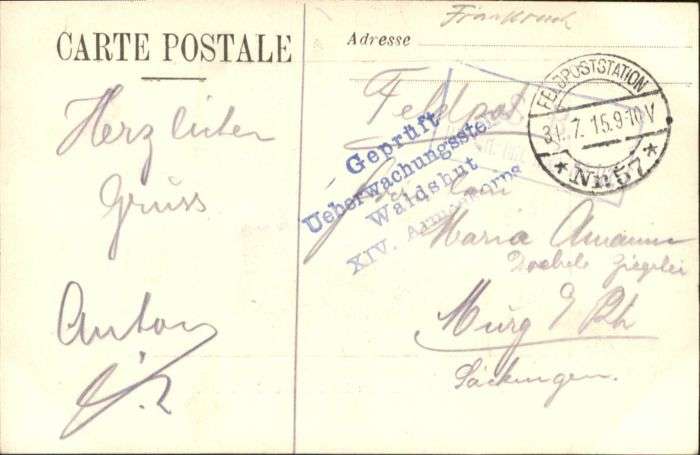 CARTE POSTALE
Herzlichen
Gruss
Anton
Adresse
Feldpost
FELDPOSTSTATION
31.7.15.9-10V
* Nr.57 *
Geprüft
Ueberwachungsstelle
Waldshut
XIV. Armeekorps
Maria Amann
Ziegelei
Murg
Säckingen.